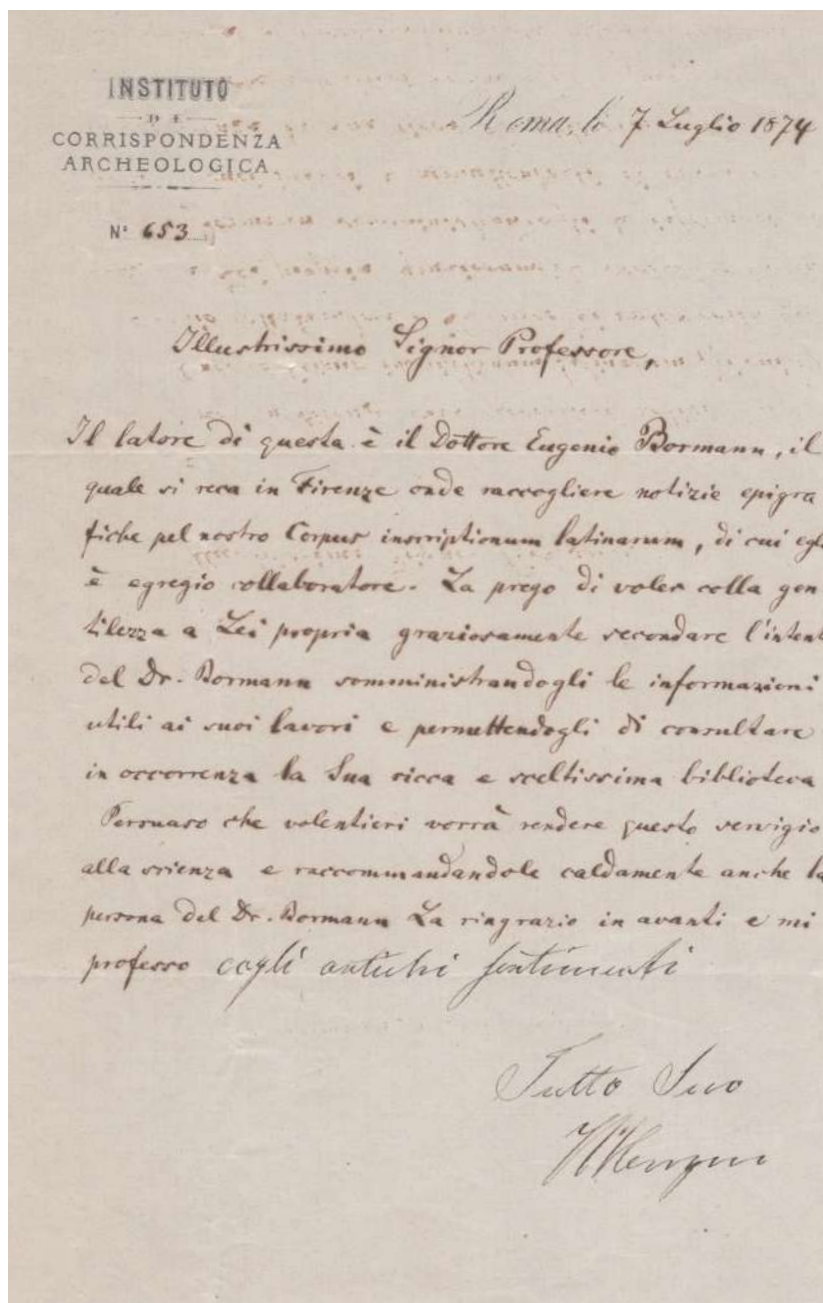 INSTITUTO
DI
CORRISPONDENZA
ARCHEOLOGICA
Roma, li 7 Luglio 1874
N° 653
Illustrissimo Signor Professore,
Il latore di questa è il Dottore Eugenio Bormann, il
quale si reca in Firenze onde raccogliere notizie epigra
fiche pel nostro Corpus inscriptionum latinarum, di cui egli
è egregio collaboratore. La prego di voler colla gen
tilezza a Lei propria graziosamente secondare l'intent
del Dr. Bormann somministrandogli le informazioni
utili ai suoi lavori e permettendogli di consultare
in occorrenza la Sua ricca e sceltissima biblioteca
Persuaso che volentieri vorrà rendere questo servigio
alla scienza e raccommandandole caldamente anche la
persona del Dr. Bormann La ringrazio in avanti e mi
professo cogli antichi sentimenti
Tutto Suo
Henzen